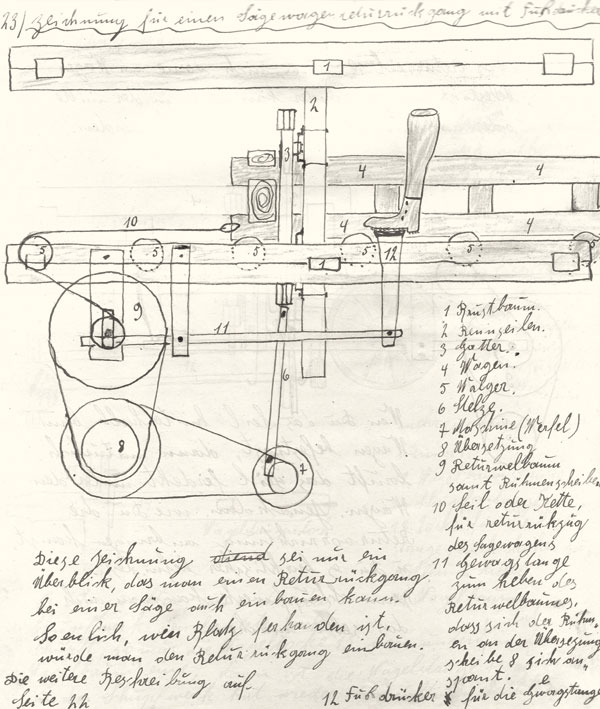 23/ Zeichnung für einen Sägewagenreturrückgang mit Fuhdrücker
1
2
3
4
4
4
4
10
5
5
5
5
5
5
1
12
9
11
6
8
7
1 Reustbaum.
2 Rennseilen.
3 Gatter.
4 Wagen.
5 Walger.
6 Stelze.
7 Maschine (Werfel)
8 Übersetzung
9 Returwelbaum
samt Rühmenscheiben
10 Seil oder Kette,
für returrükzug
des Sagewagens
11 Gewagstange
zum heben des
Returwelbaumes,
dass sich der Rühm,
en an der Übersezung
scheibe 8 sich an„
spant.
12 Fuhdrücker für die Gwagstange
Diese Zeichnung sei nur ein
Überblick, das man einen Retur rückgang
bei einer Säge auch einbauen kann.
So enlich, wien Platz ferhanden ist,
würde man den Retur rückgang einbauen.
Die weitere Beschreibung auf
Seite 22